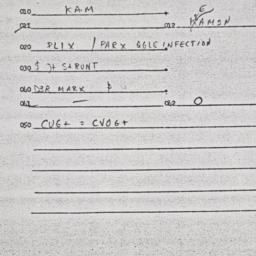 010 KAM
021 022 KAMON
020 PLIX / PARX GGLE INFECTION
030 $ H STRUNT
060 DSR MARX
061 — 062 O
050 CUG+ = CVOG+